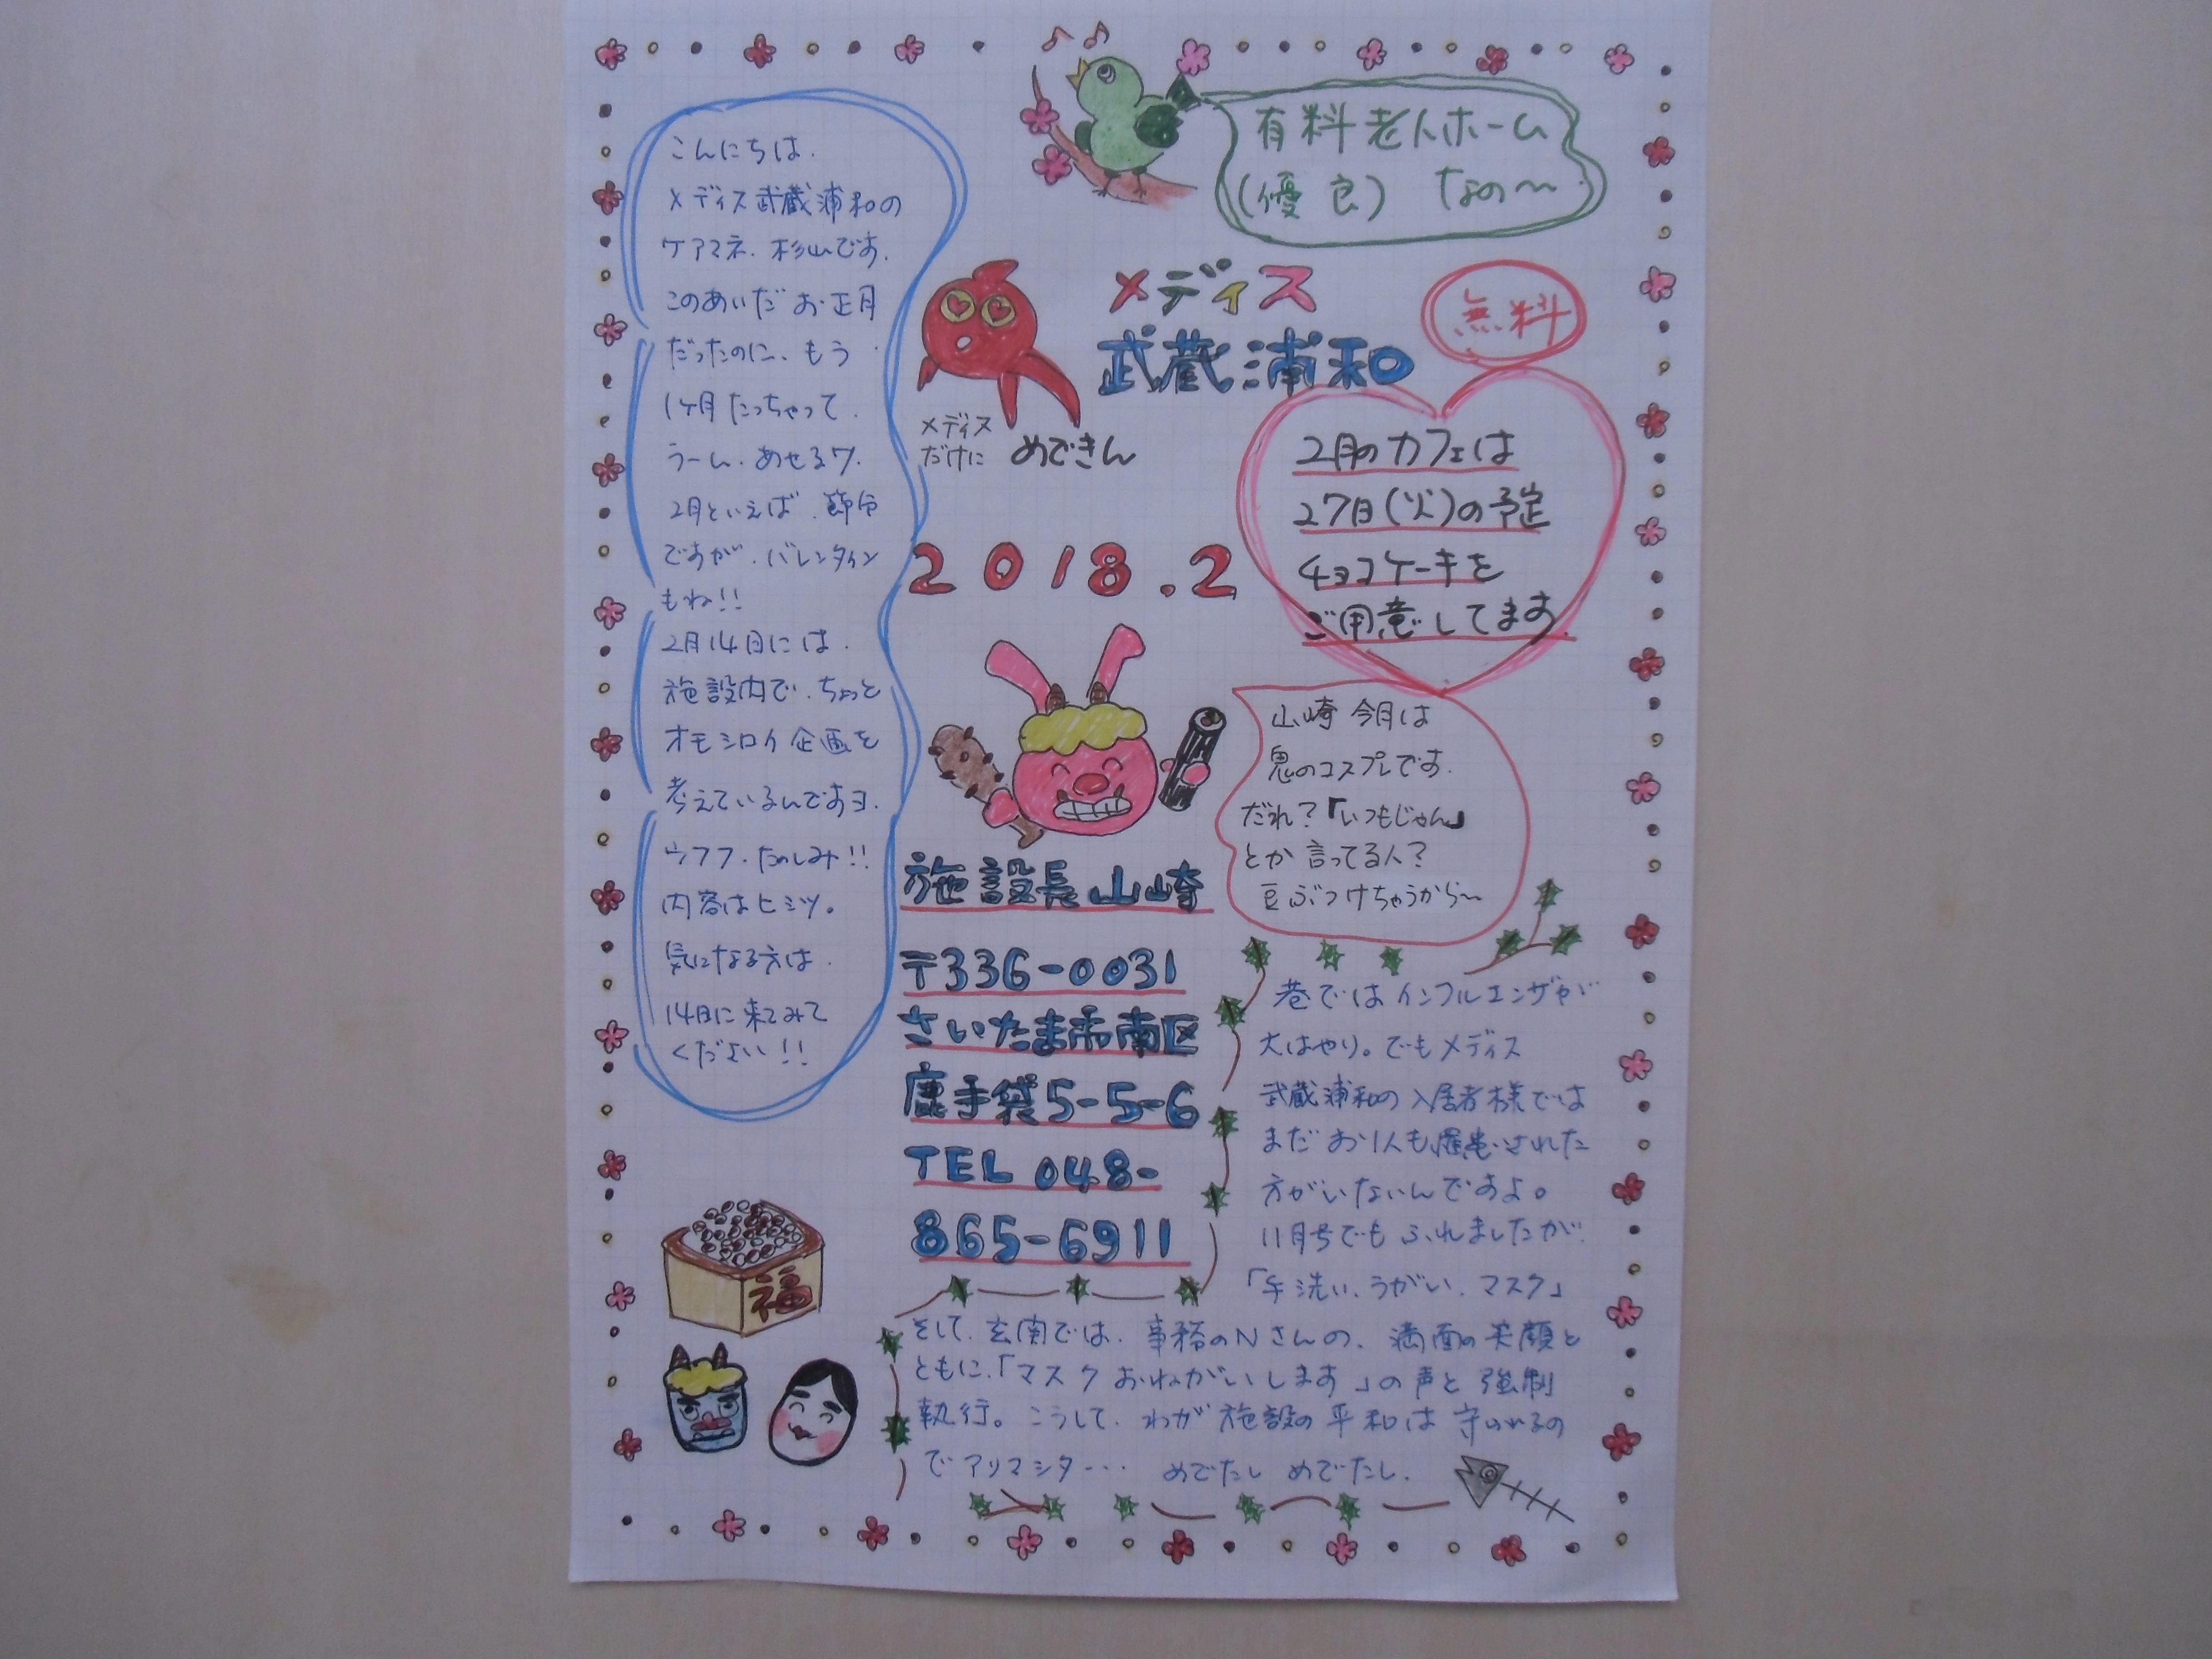 こんにちは.
メディス武蔵浦和の
ケアマネ.杉山です.
このあいだ お正月
だったのに、もう
1ヶ月 たっちゃって.
うーん.あせるワ.
2月といえば.節分
ですが.バレンタイン
もね!!
2月14日には.
施設内で.ちょっと
オモシロイ企画を
考えているんですヨ.
ウフフ・たのしみ!!
内容はヒミツ。
気になる方は.
14日に来てみて
ください!!
有料老人ホーム
(優良) なの〜
メディス
武蔵浦和
無料
メディス
だけに めできん
2月のカフェは
27日(火)の予定
チョコケーキを
ご用意してます.
2018.2
山崎 今月は
鬼のコスプレです.
だれ?「いつもじゃん」
とか 言ってる人?
豆ぶつけちゃうから〜
施設長 山崎
〒336-0031
さいたま市南区
鹿手袋5-5-6
TEL 048-
865-6911
巷では インフルエンザが
大はやり。でもメディス
武蔵浦和の入居者様では
まだ お1人も罹患された
方がいないんですよ。
11月号でも ふれましたが.
「手洗い、うがい、マスク」
そして、玄関では、事務のNさんの、満面の笑顔と
ともに、「マスク おねがいします」の声と 強制
執行。こうして、わが施設の平和は 守られるの
でアリマシタ… めでたし めでたし.
福